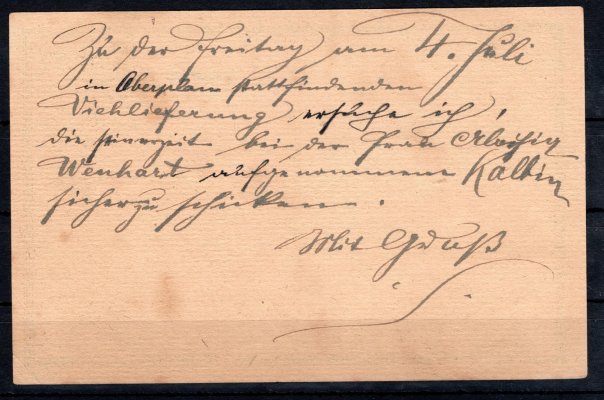 Zu der Freitag am 4. Juli
in Oberplan stattfindenden
Viehlieferung ersuche ich,
die seinerzeit bei der Frau Aloisia
Wenhart aufgenommene Kalbin
sicher zu schicken.
Mit Gruß